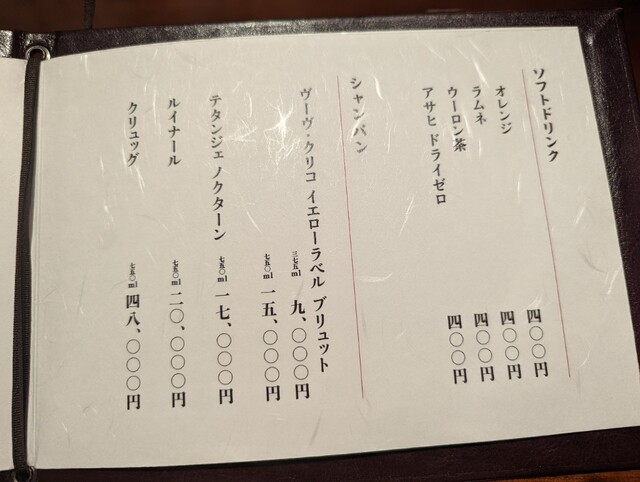 ソフトドリンク
オレンジ 四〇〇円
ラムネ 四〇〇円
ウーロン茶 四〇〇円
アサヒ ドライゼロ 四〇〇円
シャンパン
ヴーヴ・クリコ イエローラベル ブリュット
三七五ml 九、〇〇〇円
七五〇ml 一五、〇〇〇円
テタンジェ ノクターン 七五〇ml 一七、〇〇〇円
ルイナール 七五〇ml 二〇、〇〇〇円
クリュッグ 七五〇ml 四八、〇〇〇円